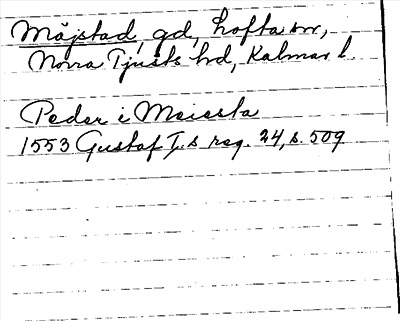 Måjstad, gd, Lofta sn,
Norra Tjusts hd, Kalmar l.
Peder i Meiesta
1553 Gustaf I.s reg. 24, s. 509